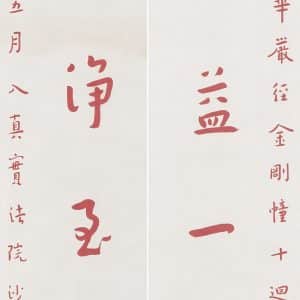 華嚴經金剛幢十迴
益一
净
五月入真實法院沙